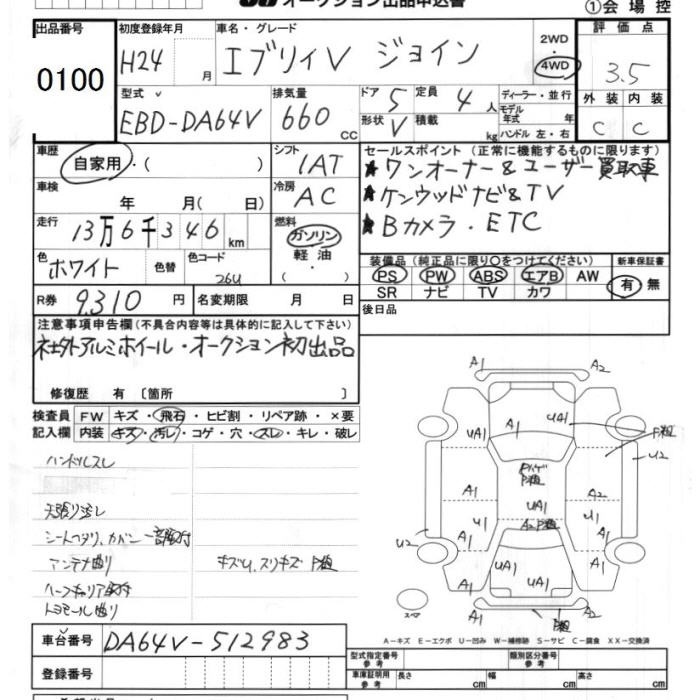 オークション出品申込書
①会場控
出品番号
0100
初度登録年月
H24 月
車名・グレード
エブリィV ジョイン
2WD
・
4WD
評価点
3.5
外装 内装
C C
型式
EBD-DA64V
排気量
660 CC
ドア 5
形状 V
定員 4 人
積載 kg
ディーラー・並行
モデル年式 年
ハンドル 左・右
車歴
自家用・( )
シフト
1AT
車検
年 月( 日)
冷房
AC
走行
13万6千346 km
燃料
ガソリン
軽油
・
( )
色
ホワイト
色替
色コード
26U
R券 9,310 円
名変期限 月 日
セールスポイント (正常に機能するものに限ります)
★ワンオーナー&ユーザー買取車
★ケンウッドナビ&TV
★Bカメラ・ETC
装備品(純正品に限り○をつけてください)
PS PW ABS エアB AW
SR ナビ TV カワ
新車保証書
有・無
後日品
注意事項申告欄(不具合内容等は具体的に記入して下さい)
社外アルミホイール・オークション初出品
修復歴 有 〔箇所 〕
検査員 FW キズ・飛石・ヒビ割・リペア跡・×要
記入欄 内装 キズ・汚レ・コゲ・穴・スレ・キレ・破レ
ハンドルスレ
天張り汚レ
シートヘタリ、カバー一部取付
アンテナ曲り
キズU、スリキズ P粗
ハーフキャリア取付
トヨモール曲り
A1 A2
A1 UA1
UA1 P粗
U2
P粗
A1 UA1 A2
U1 A2 P粗 U1
U2 A1 A1
A1 UA1 UA1 A1
スペア
A1 P粗
A-キズ E-エクボ U-凹み W-補修跡 S-サビ C-腐食 XX-交換済
車台番号 DA64V-512983
登録番号
型式指定番号
参考
類別区分番号
参考
車庫証明用
参考
長さ cm 幅 cm 高さ cm